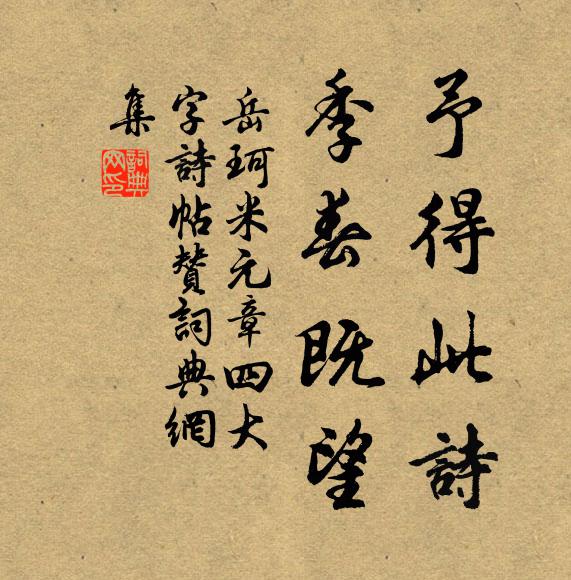 予得此詩
季春既望
岳珂米元章四大
字詩帖賛詞典網
集
詞典網印